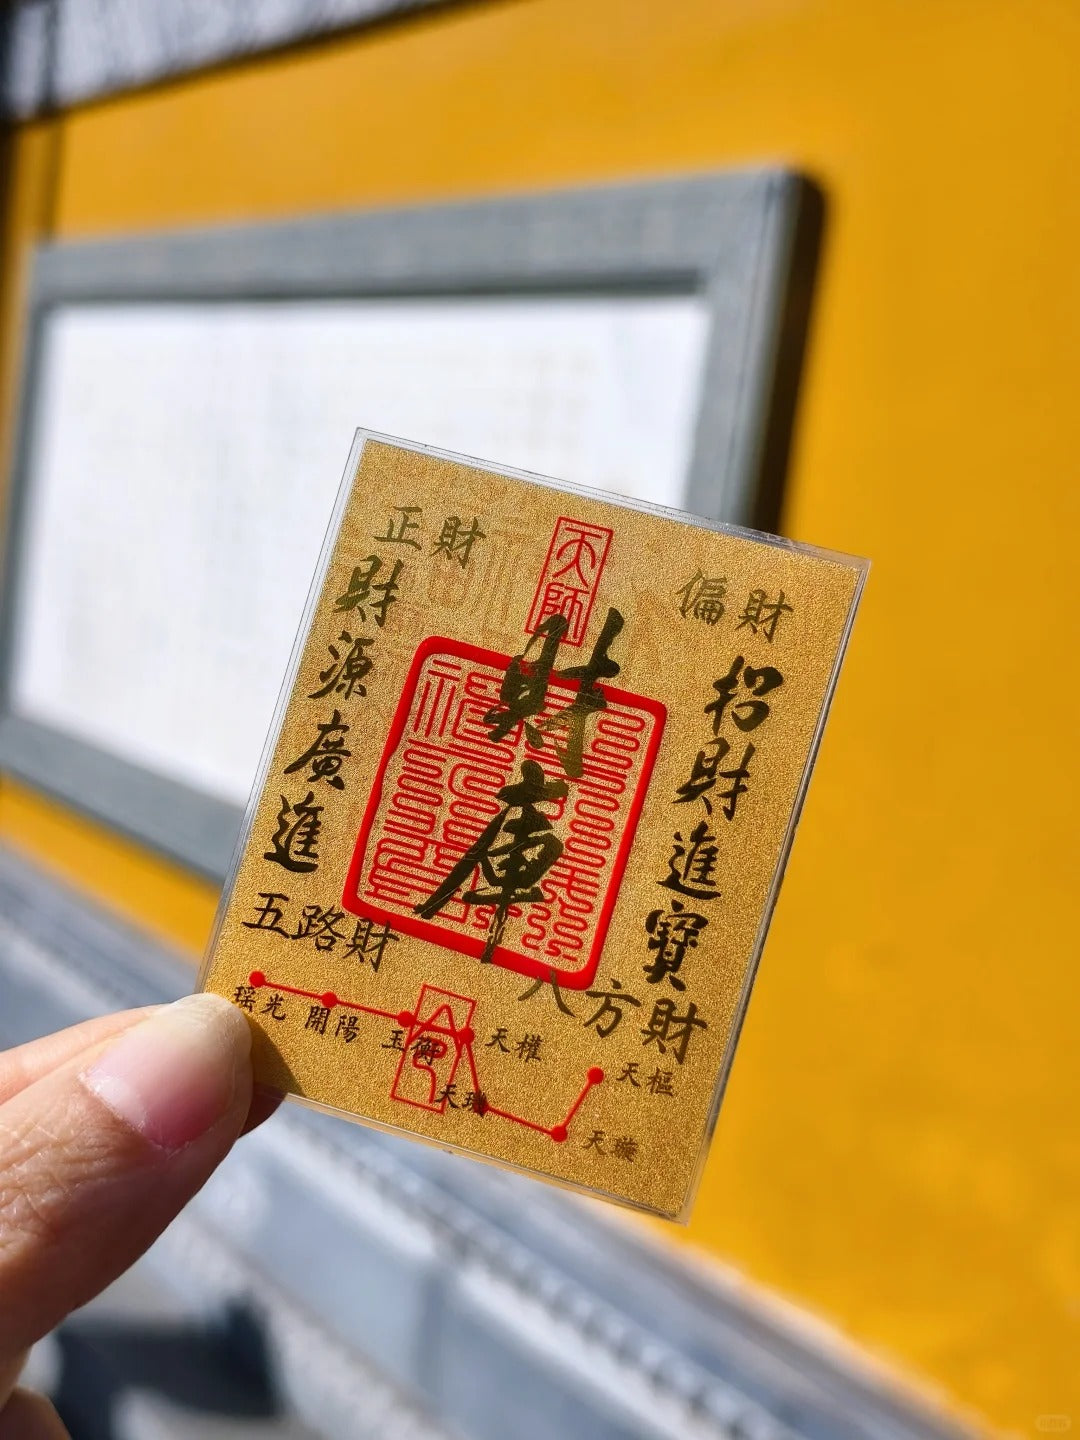 正財
偏財
天師
財庫
招財進寶
財源廣進
五路財
八方財
瑤光
開陽
玉衡
天權
天璣
天樞
天璇